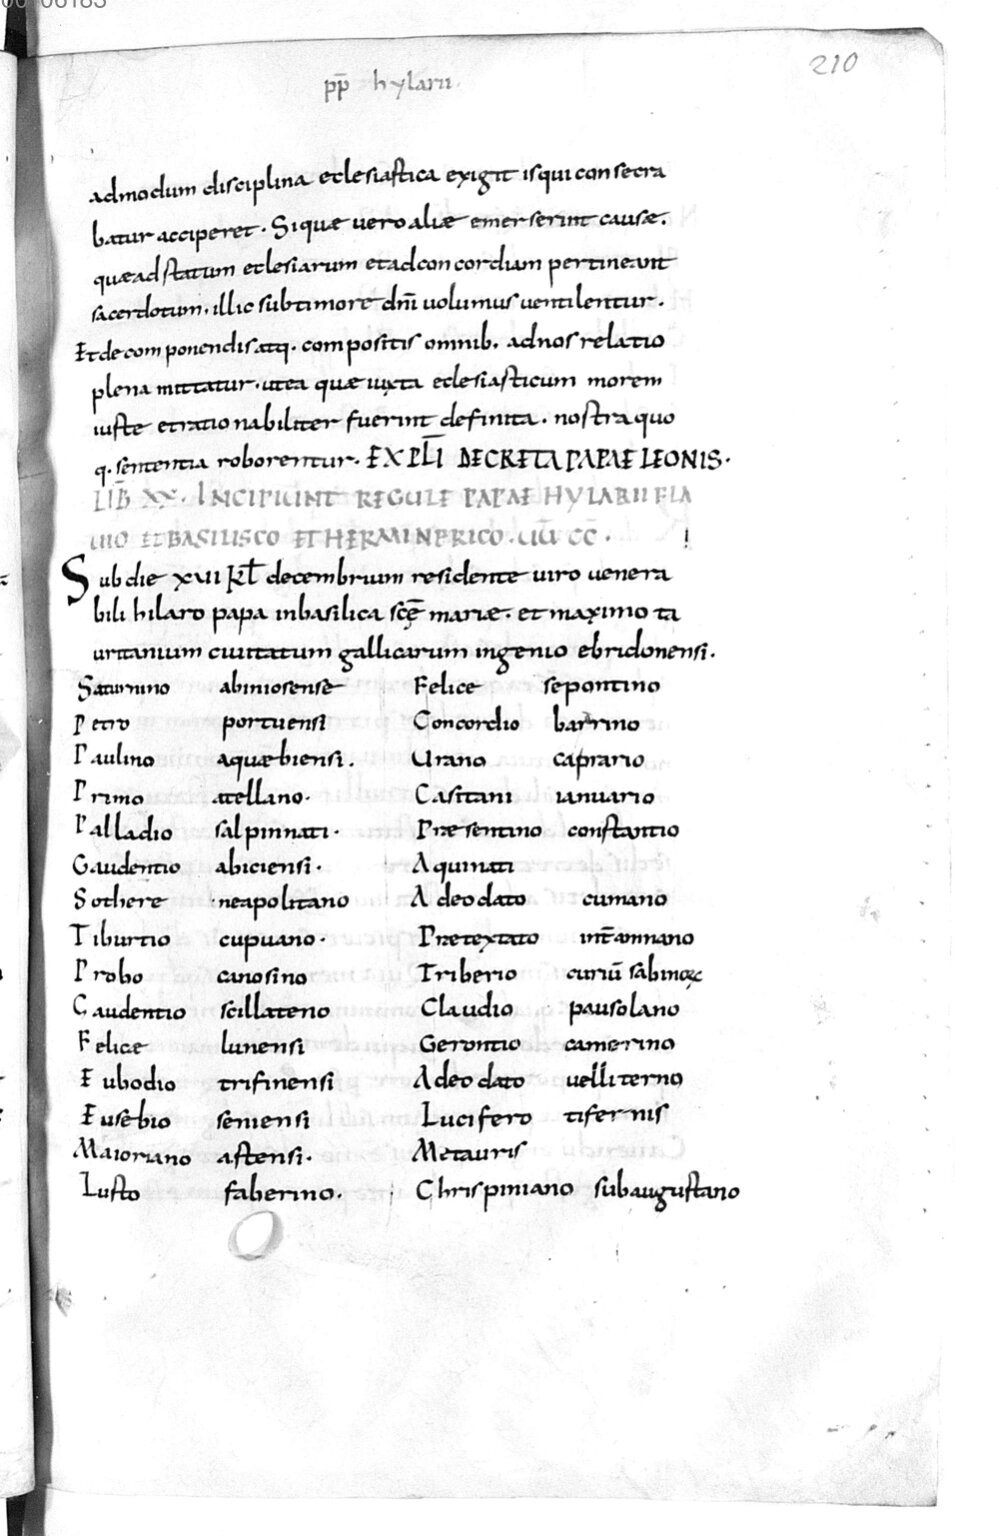 00106183
210
pp̄ hylarii.
admodum disciplina eclesiastica exigit isqui consecra
batur acciperet. Siquæ vero aliæ emerserint causæ.
quæ ad statum eclesiarum et ad concordiam pertineant
sacerdotum. illic sub timore dn̄i uolumus uentilentur.
Et de componendis atq. compositis omnib. ad nos relatio
plena mittatur. ut ea quæ iuxta eclesiasticum morem
iuste et rationabiliter fuerint definita. nostra quo
q. sententia roborentur. EXPLI̅ DECRETA PAPAE LEONIS.
LIB̄ XX. INCIPIUNT REGULE PAPAE HYLARII FLA
UIO ET BASILISCO ET HERMINERICO. UŪ CC̄.
Sub die xuii kl̄ decembrium residente uiro uenera
bili hilaro papa in basilica scę̄ mariæ. et maximo ta
uritanium ciuitatum gallicarum ingenio ebridonensi.
Saturnino abiniosense Felice sepontino
Petro portuensi Concordio barrino
Paulino aquæbiensi. Urano caprario
Primo atellano. Casitani ianuario
Palladio salpinnati. Præsentino constantio
Gaudentio abiciensi. Aquinati
Sothere neapolitano Adeodato cumano
Tiburtio cupuano. Prætextato int̄amnano
Probo canosino Triberio curiū sabinoꝝ
Gaudentio scillateno Claudio pausolano
Felice lunensi Gerontio camerino
Eubodio trifinensi Adeodato uelliterno
Eusebio seniensi Lucifero tifernis
Maioriano astensi. Metauris
Iusto faberino. Chrispiniano subaugustano